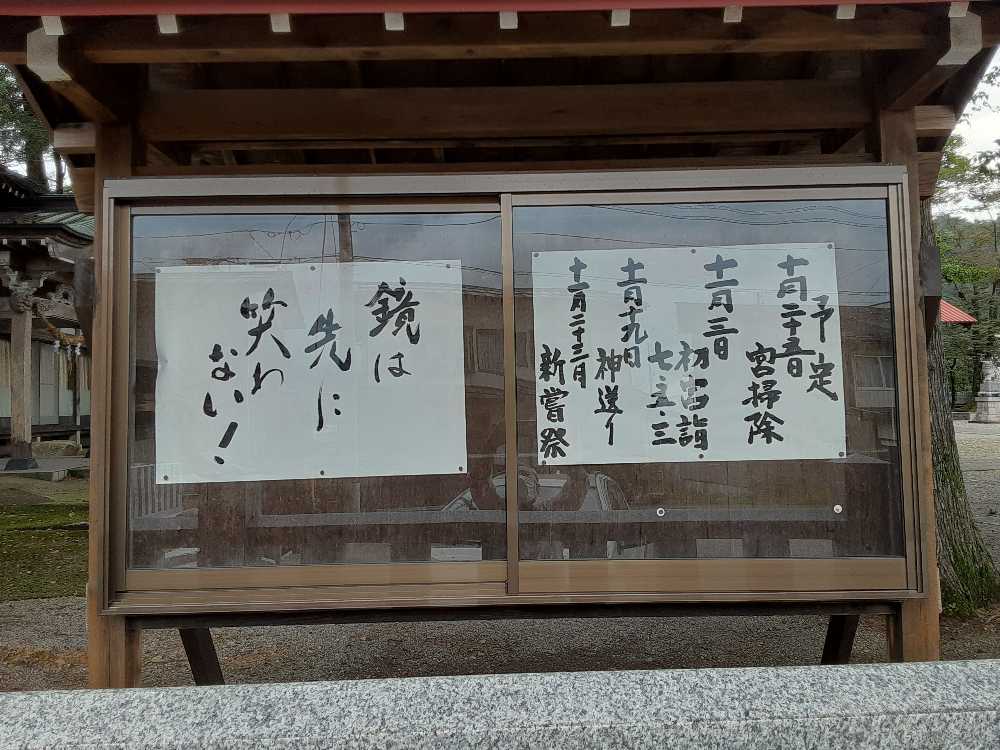 予定
十月二十五日
宮掃除
十一月三日
初宮詣
七五三
十一月十九日
神送り
十一月二十三日
新嘗祭
鏡は
先に
笑わ
ない!